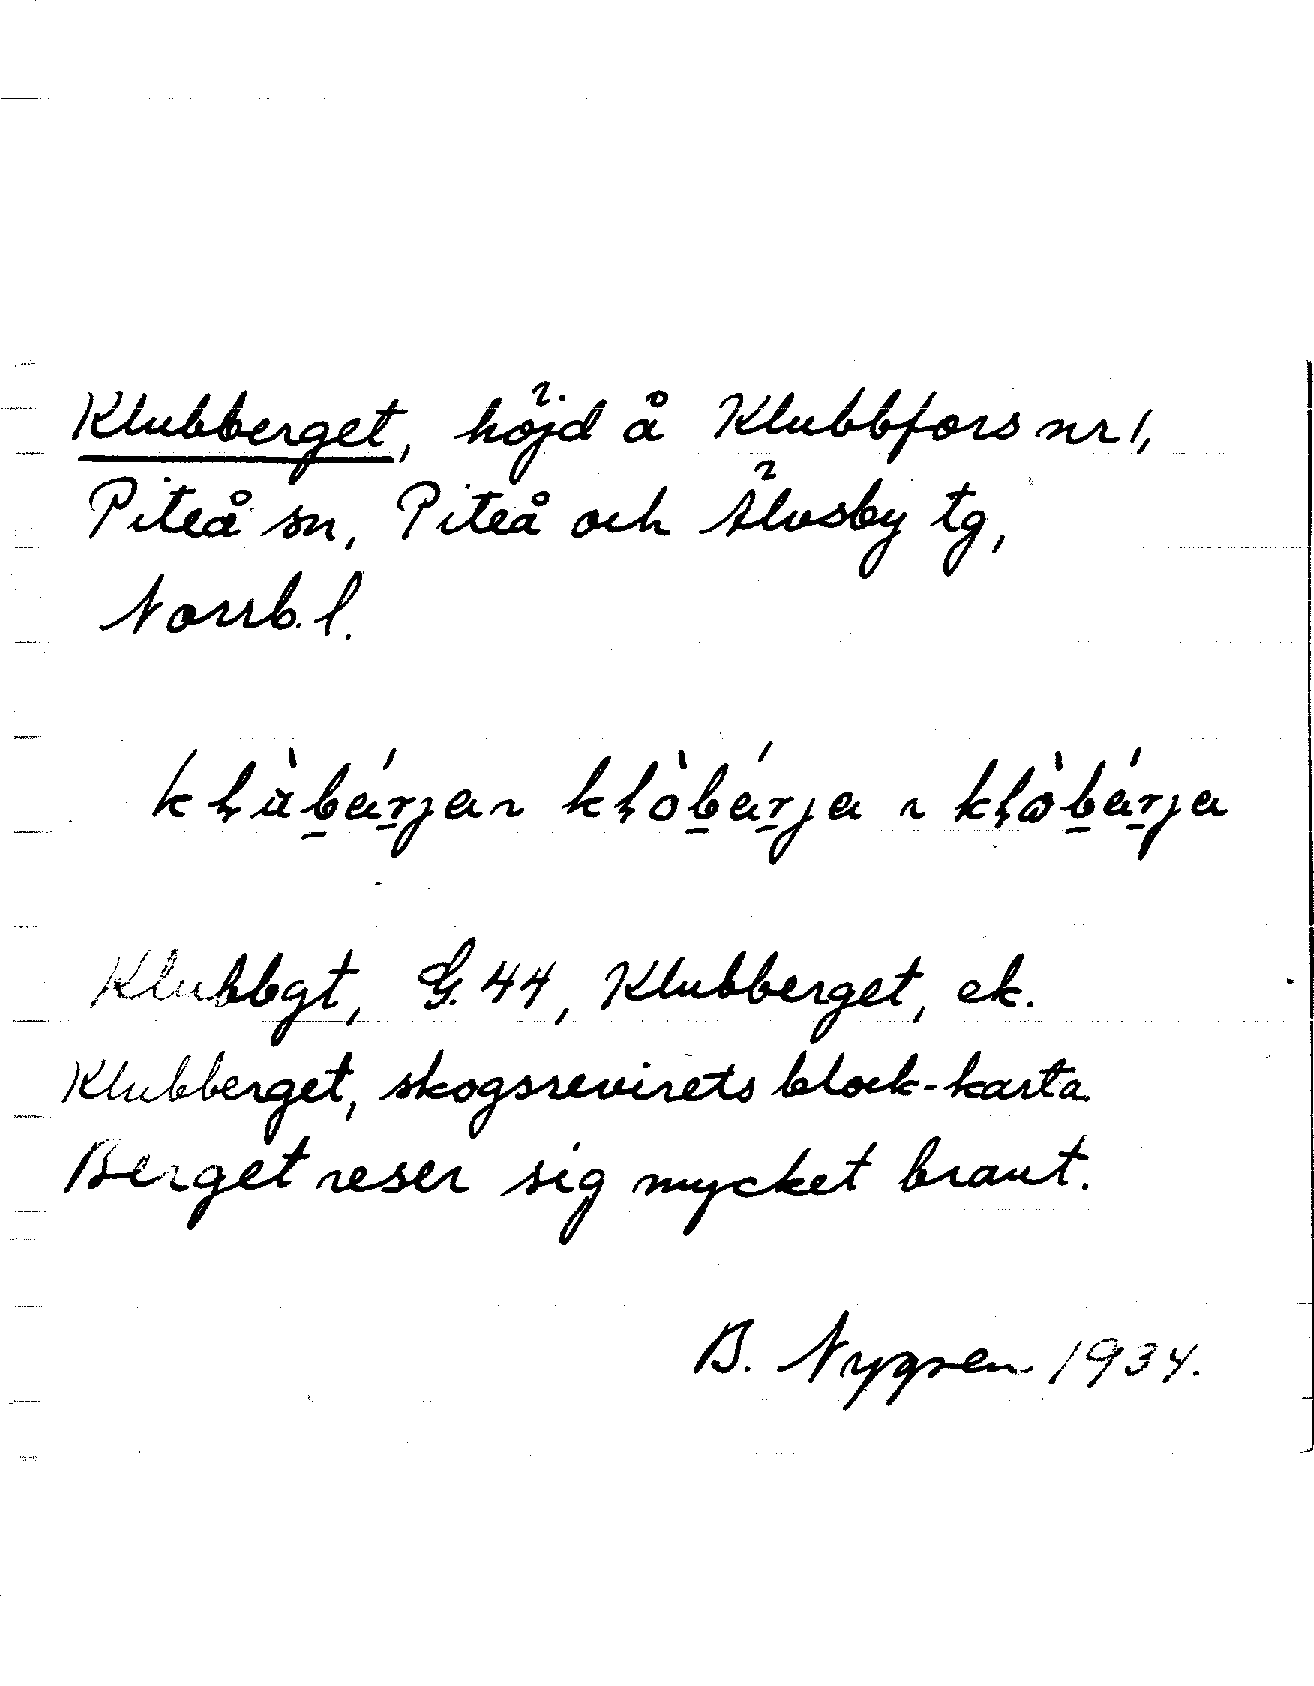 Klubberget, höjd å Klubbfors nr 1,
Piteå sn, Piteå och Älvsby tg,
Norrb. l.
Klubbgt, G. 44, Klubberget, ek.
Klubberget, skogsrevirets block-karta
Berget reser sig mycket brant.
B. Nygren 1934.